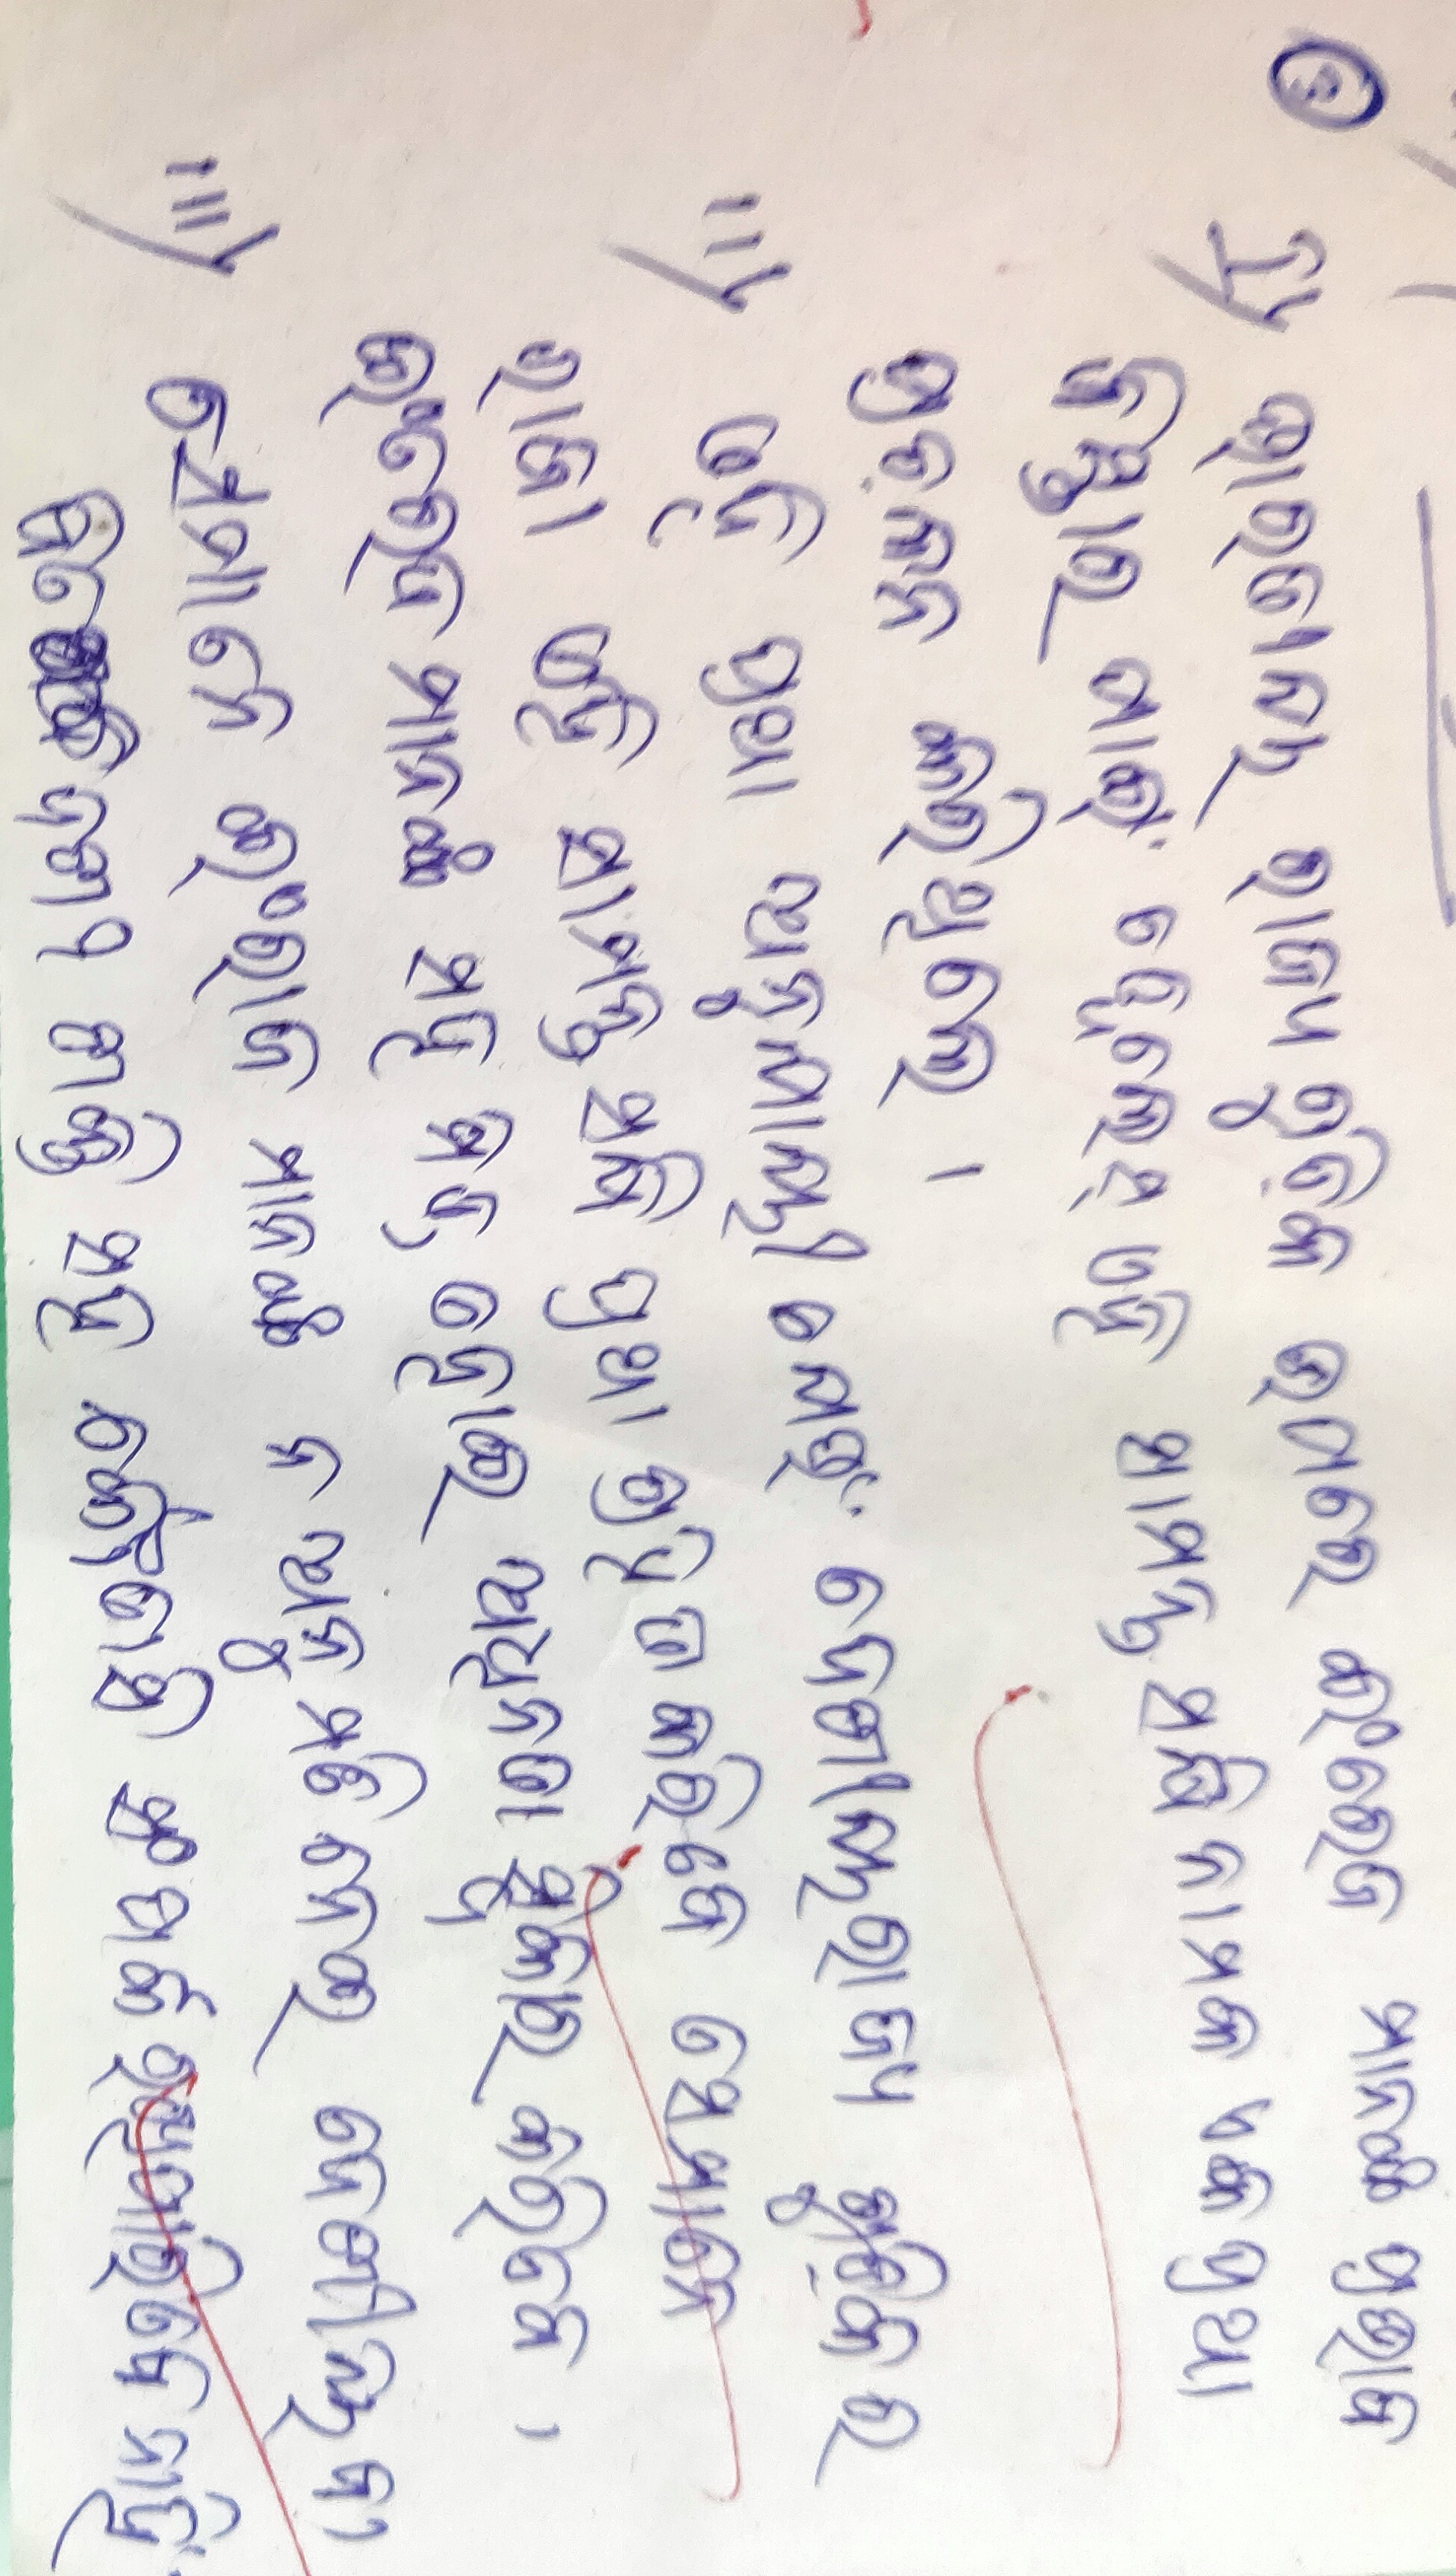 ୫
I) ଭାରତୀୟ ରାଜ୍ୟ ଗୁଡ଼ିକ ଉପରେ ଇଂରେଜ ମାନଙ୍କ ପ୍ରଭାବ
ବିସ୍ତାର ପାଇଁ ୱେଲେସ୍ ଏହି ସାମନ୍ତ ସନ୍ଧି ନାମକ ଏକ ପ୍ରଥା
ପ୍ରଚଳନ କରିଥିଲେ ।
ii) ଏହି ପ୍ରଥା ଅନୁଯାୟୀ ଯେଉଁ ଦେଶୀୟ ରାଜ୍ୟ ଗୁଡ଼ିକର
ରାଜା ଏହି ସାମନ୍ତ ସନ୍ଧି ପ୍ରଥା ଗ୍ରହିତ କରିବେ ସେମାନେ
ଇଂରେଜ ମାନଙ୍କ ସହ ମିତ୍ର ହୋଇ ଅଧିନତା ସ୍ବିକାର କରିବେ ।
iii) ସେମାନେ ଇଂରାଜ ମାନଙ୍କ ନ ଅନୁମତି ନେଇ ଦେଶୀୟ ବା
ଶକ୍ତି ସହ କୌଣସି ସଂପର୍କ ରଖିପାରିବେ ନାହିଁ